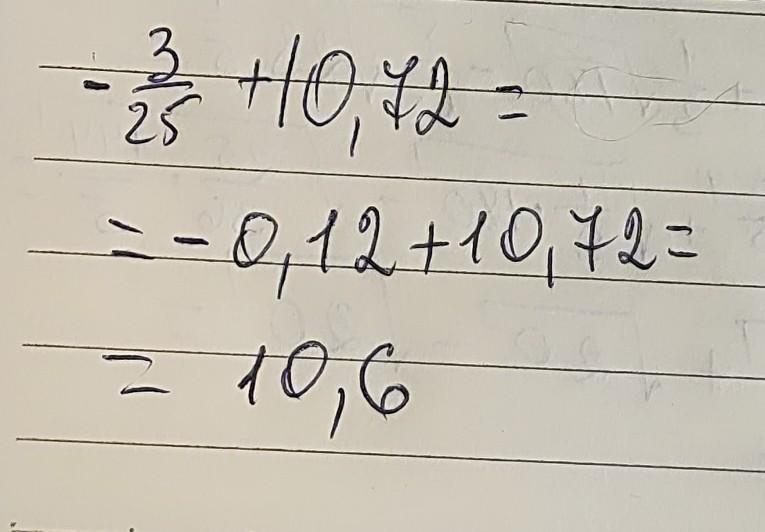 - 3/25 + 10,72 =
= - 0,12 + 10,72 =
= 10,6